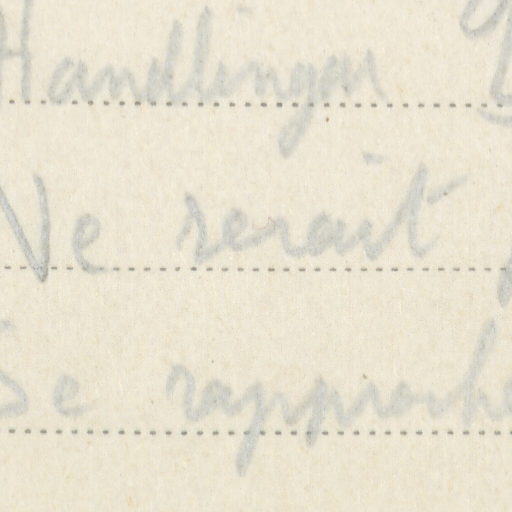 Handlingar
Ne serait
Se rapproche